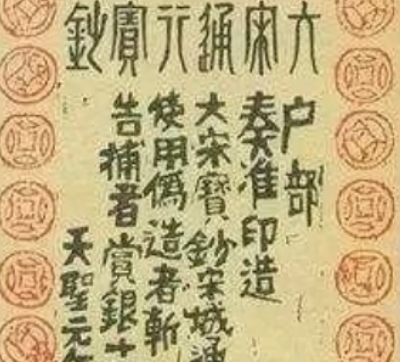 大宋通行寶鈔
户部
奏准印造
大宋寶鈔宋城通
使用偽造者斬
告捕者賞銀十
天聖元年